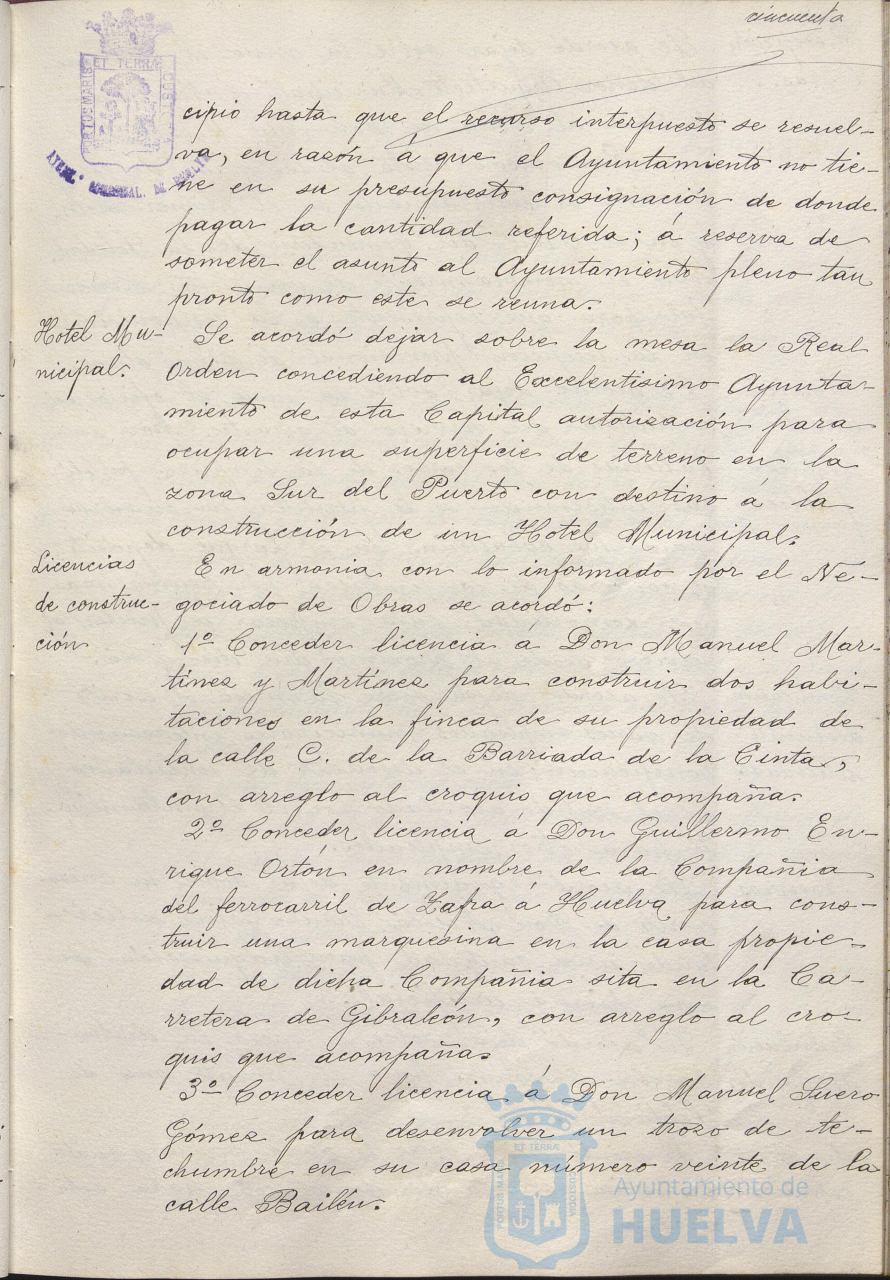 cincuenta
PORTUS MARIS ET TERRÆ CUSTODIA
cipio hasta que el recurso interpuesto se resuel-
va, en razón á que el Ayuntamiento no tie-
ne en su presupuesto consignación de donde
pagar la cantidad referida; á reserva de
someter el asunto al Ayuntamiento pleno tan
pronto como este se reuna.
Hotel Mu-
nicipal.
Se acordó dejar sobre la mesa la Real
Orden concediendo al Excelentisimo Ayunta-
miento de esta Capital autorización para
ocupar una superficie de terreno en la
zona Sur del Puerto con destino á la
construcción de un Hotel Municipal.
Licencias
de construc-
ción
En armonia con lo informado por el Ne-
gociado de Obras se acordó:
1º Conceder licencia á Don Manuel Mar-
tinez y Martínez para construir dos habi-
taciones en la finca de su propiedad de
la calle C. de la Barriada de la Cinta,
con arreglo al croquis que acompaña.
2º Conceder licencia á Don Guillermo En-
rique Ortón en nombre de la Compañia
del ferrocarril de Zafra á Huelva para cons-
truir una marquesina en la casa propie-
dad de dicha Compañia sita en la Ca-
rretera de Gibraleón, con arreglo al cro-
quis que acompaña.
3º Conceder licencia á Don Manuel Suero
Gómez para desenvolver un trozo de te-
chumbre en su casa número veinte de la
calle Bailén.
PORTUS MARIS ET TERRÆ CUSTODIA
Ayuntamiento de
HUELVA